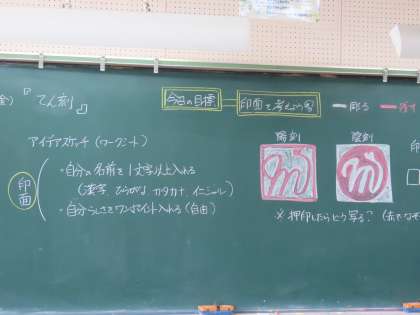 金)
『てん刻』
今日の目標
印面を考えよう
彫る
残す
アイデアスケッチ (ワークシート)
印面
・自分の名前を1文字以上入れる
(漢字、ひらがな、カタカナ、イニシャル)
・自分らしさをワンポイント入れる (自由)
陽刻
陰刻
m
m
印
※押印したらどう写る? (赤でなぞ